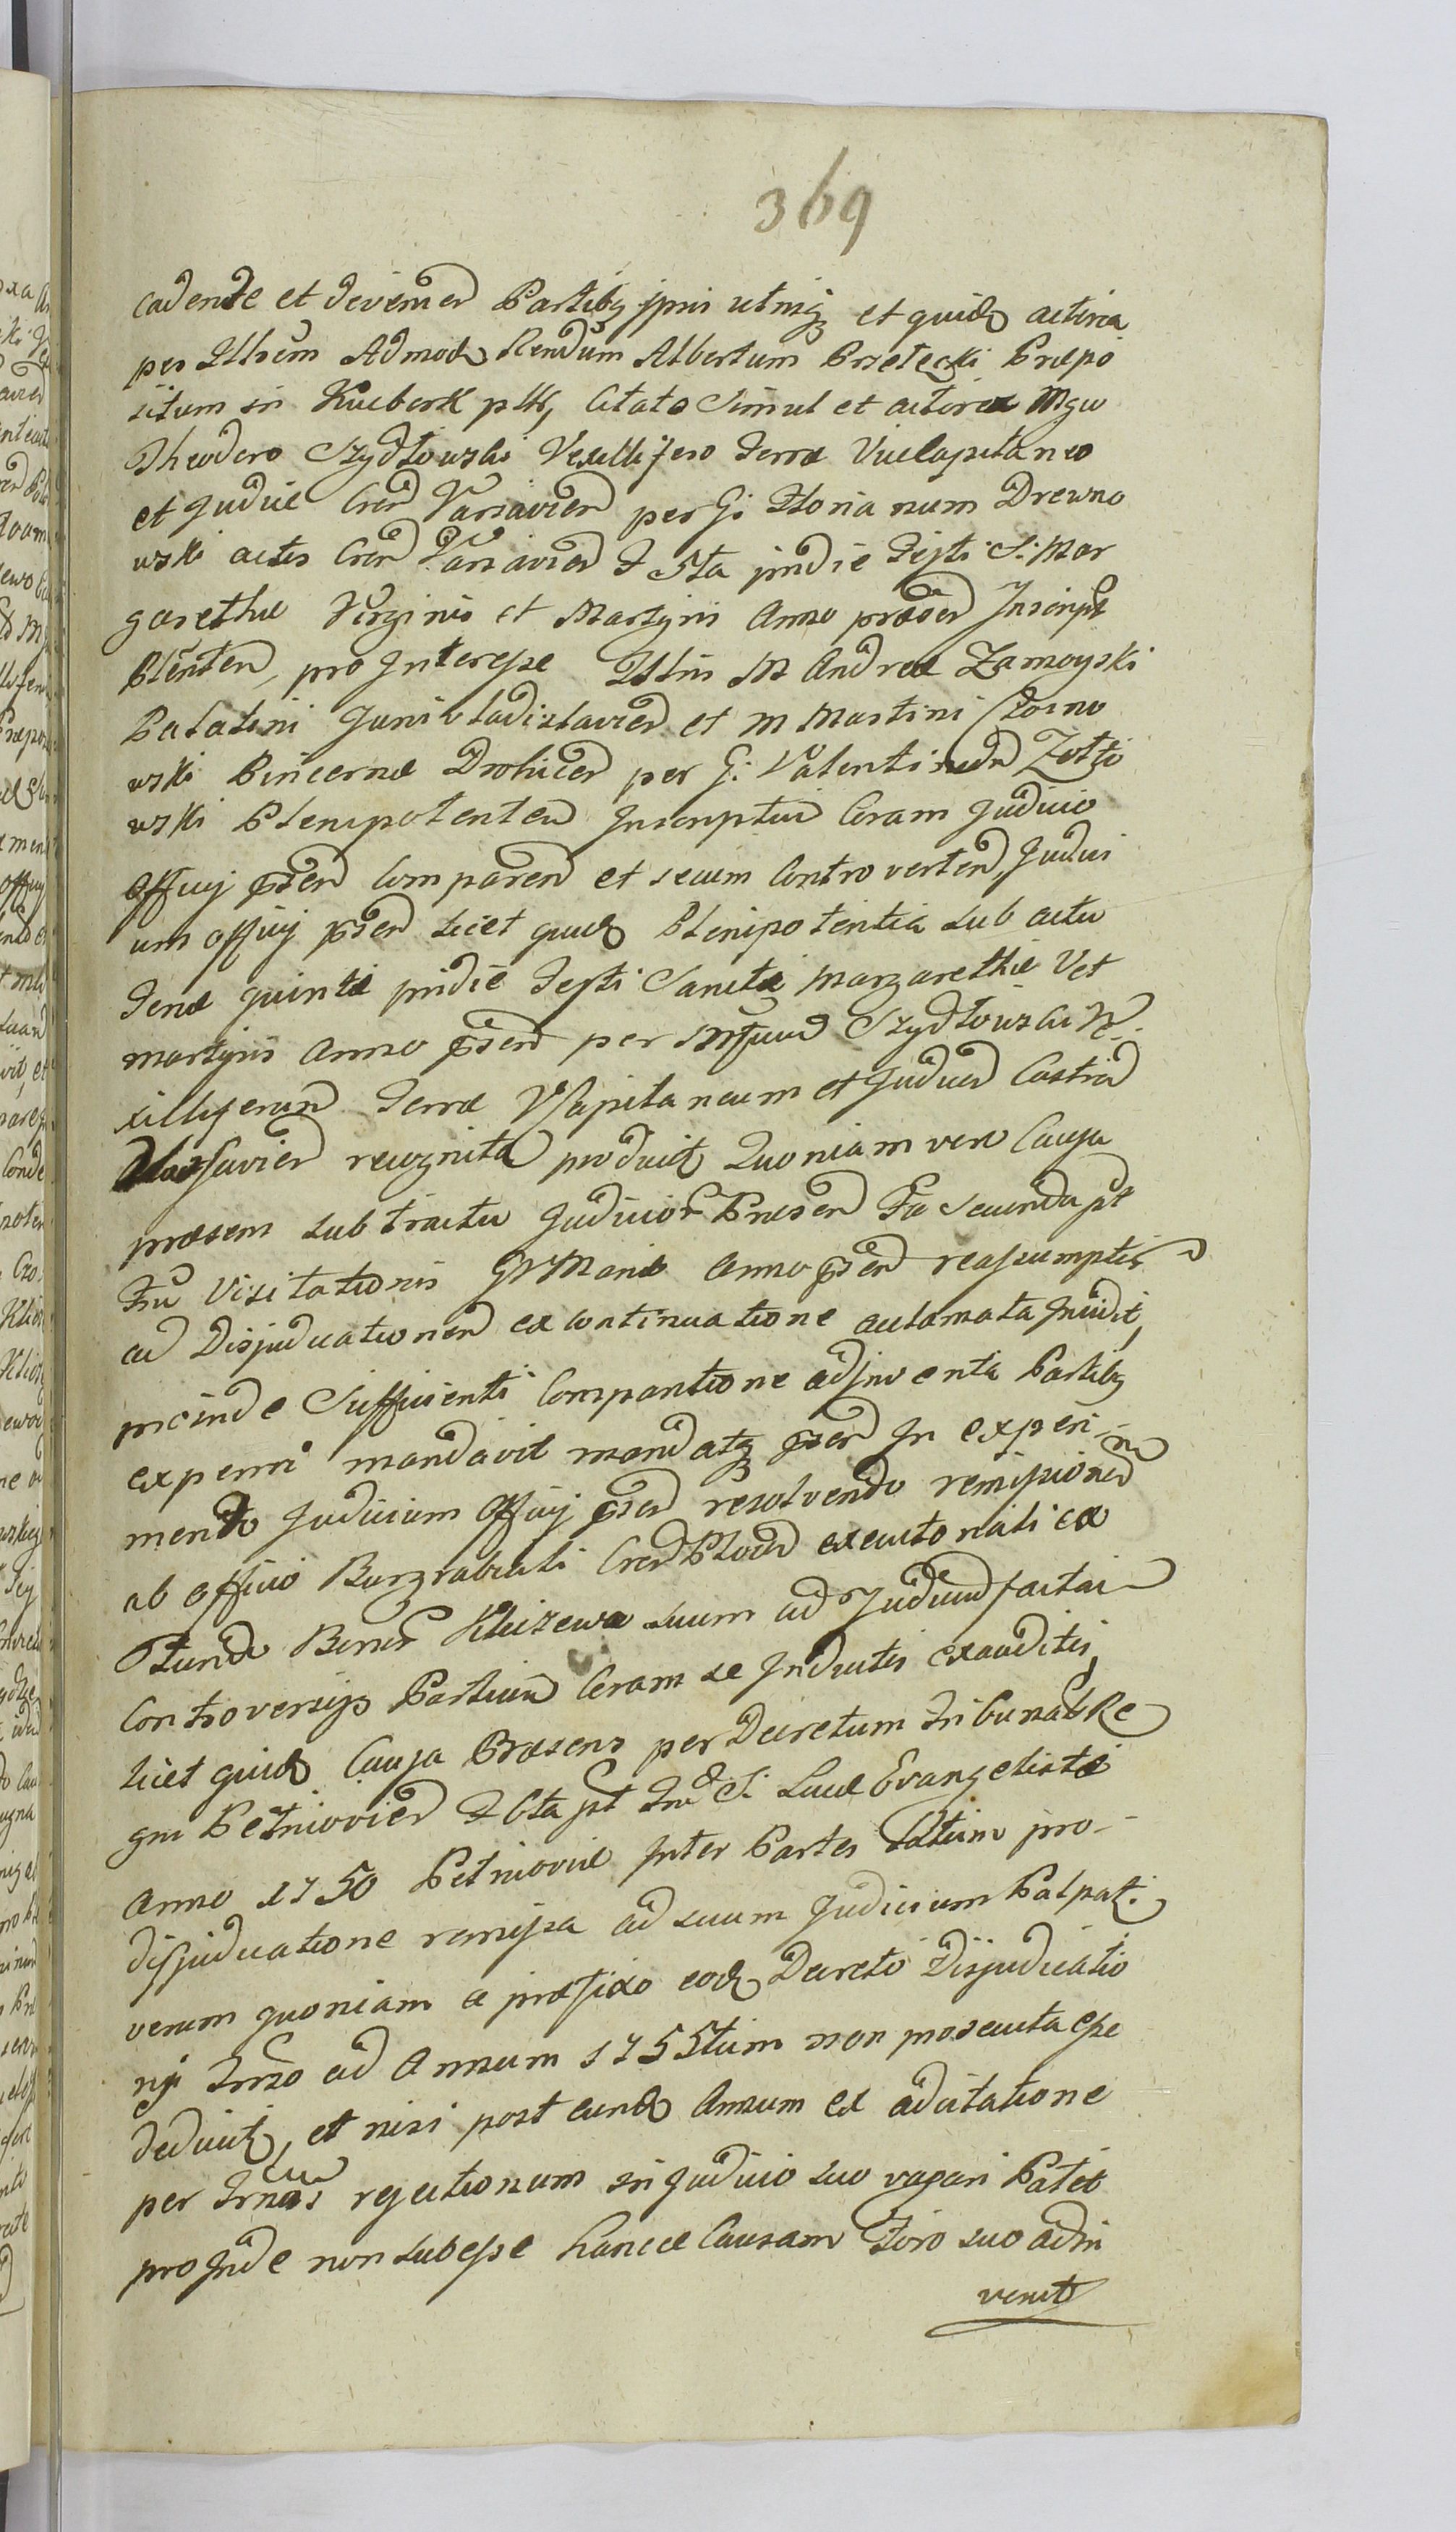 369
cadente et deveniend Partibq ipsis utrisq et quidq actorea
per Illrem Admodq Rendum Albertum Przetecki Præpo
situm in Kucbork ptth, Citato simul et actorea Mgco
Theodoro Szydłowski Vexillifero Terræ Vicecapitaneo
et Judice Cren Varsavien per G: Florianum Drewno
wski actis Cren Varsavien F 5ta pridie Festi S: Mar
garethæ Virginis et Martyris Anno præsen Inscript
Plenten, pro Interesse Illris M Andreæ Zamoyski
Palatini Junivladislavien et M Martini Czarno
wski Pincernæ Drohicen per G: Valentinum
wski Plenipotenten Inscriptum Coram Judicio
Officij psen Comparen et secum Controverten, Judici
um officij psen licet quidq Plenipotentia sub actu
Feria quinta pridie Festi Sanctæ Margarethæ Vet
Martyris Anno psen per Mfcum Szydłowski Ve-
xilliferum Terræ VCapitaneum et Judicem Castren
Varsavien recognita producit Quoniam vero Causa
præsens sub tractu Judicior Præsen Fa Secunda pt
Ftu Visitationis BVMariæ Anno psen reassumptis
ad Disjudicationem ex continuatione acclamata Incidit,
proinde Sufficienti Comparitione adjnventa Partibq
experiri mandavit mandatq psen In experi-
mento Judicium Officij psen resolvendo remissionem
ab officio Burgrabiali Cren Plocen executoriali ex
Ptund Bonor Kliczewa suum ad Judicium factam
Controversijs Partium Coram se Inductis exauditis,
licet quidq Causa Præsens per Decretum Tribunals Re
gni Petricovien F 6ta pt Ftu S: Lucæ Evangelistæ
Anno 1750 Petricoviæ Inter Partes Latum pro-
disjudicatione remissa ad suum Judicium Palpat:
verum quoniam a præfixo eodq Decreto Disjudicatio
nis Trno ad Annum 1755tum non prosecuta esse
deducit, et nisi post eundq Annum ex adcitatione
per Trnos rejectionum in Judicio suo vagari Patet
pro Inde non subesse hancce Causam Foro suo adin
venit